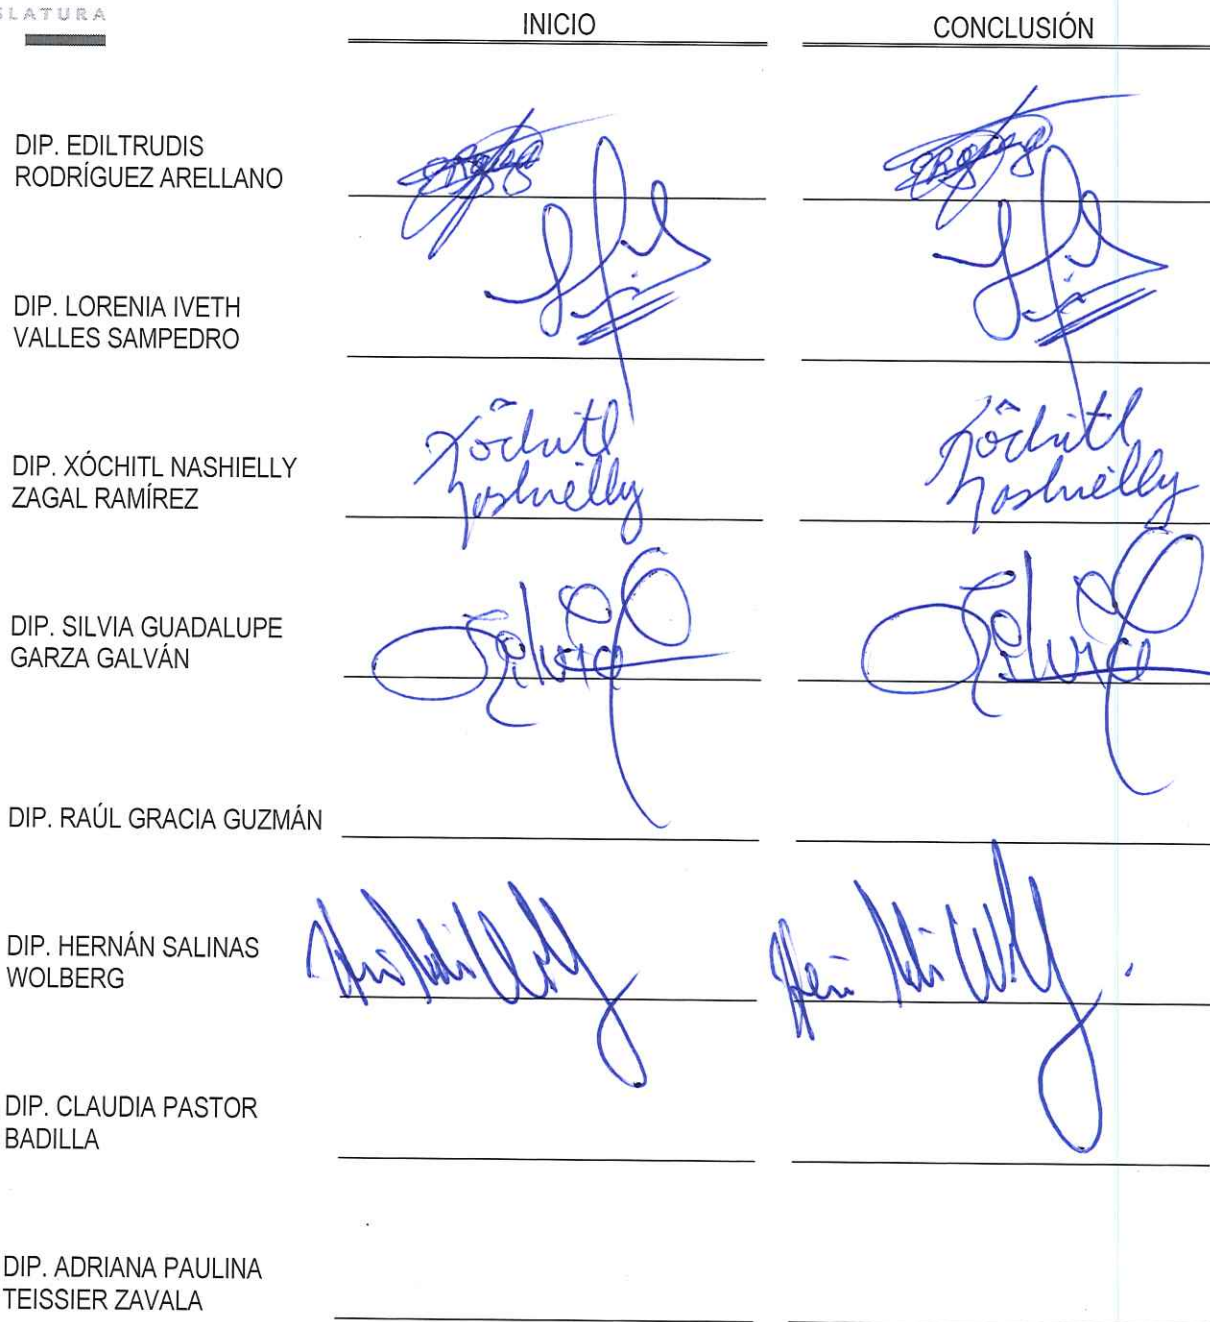 SLATURA
INICIO CONCLUSIÓN
DIP. EDILTRUDIS
RODRÍGUEZ ARELLANO
DIP. LORENIA IVETH
VALLES SAMPEDRO
DIP. XÓCHITL NASHIELLY
ZAGAL RAMÍREZ
Xóchitl Xóchitl
Nashielly Nashielly
DIP. SILVIA GUADALUPE
GARZA GALVÁN
Silvia Silvia
DIP. RAÚL GRACIA GUZMÁN
DIP. HERNÁN SALINAS
WOLBERG
DIP. CLAUDIA PASTOR
BADILLA
DIP. ADRIANA PAULINA
TEISSIER ZAVALA